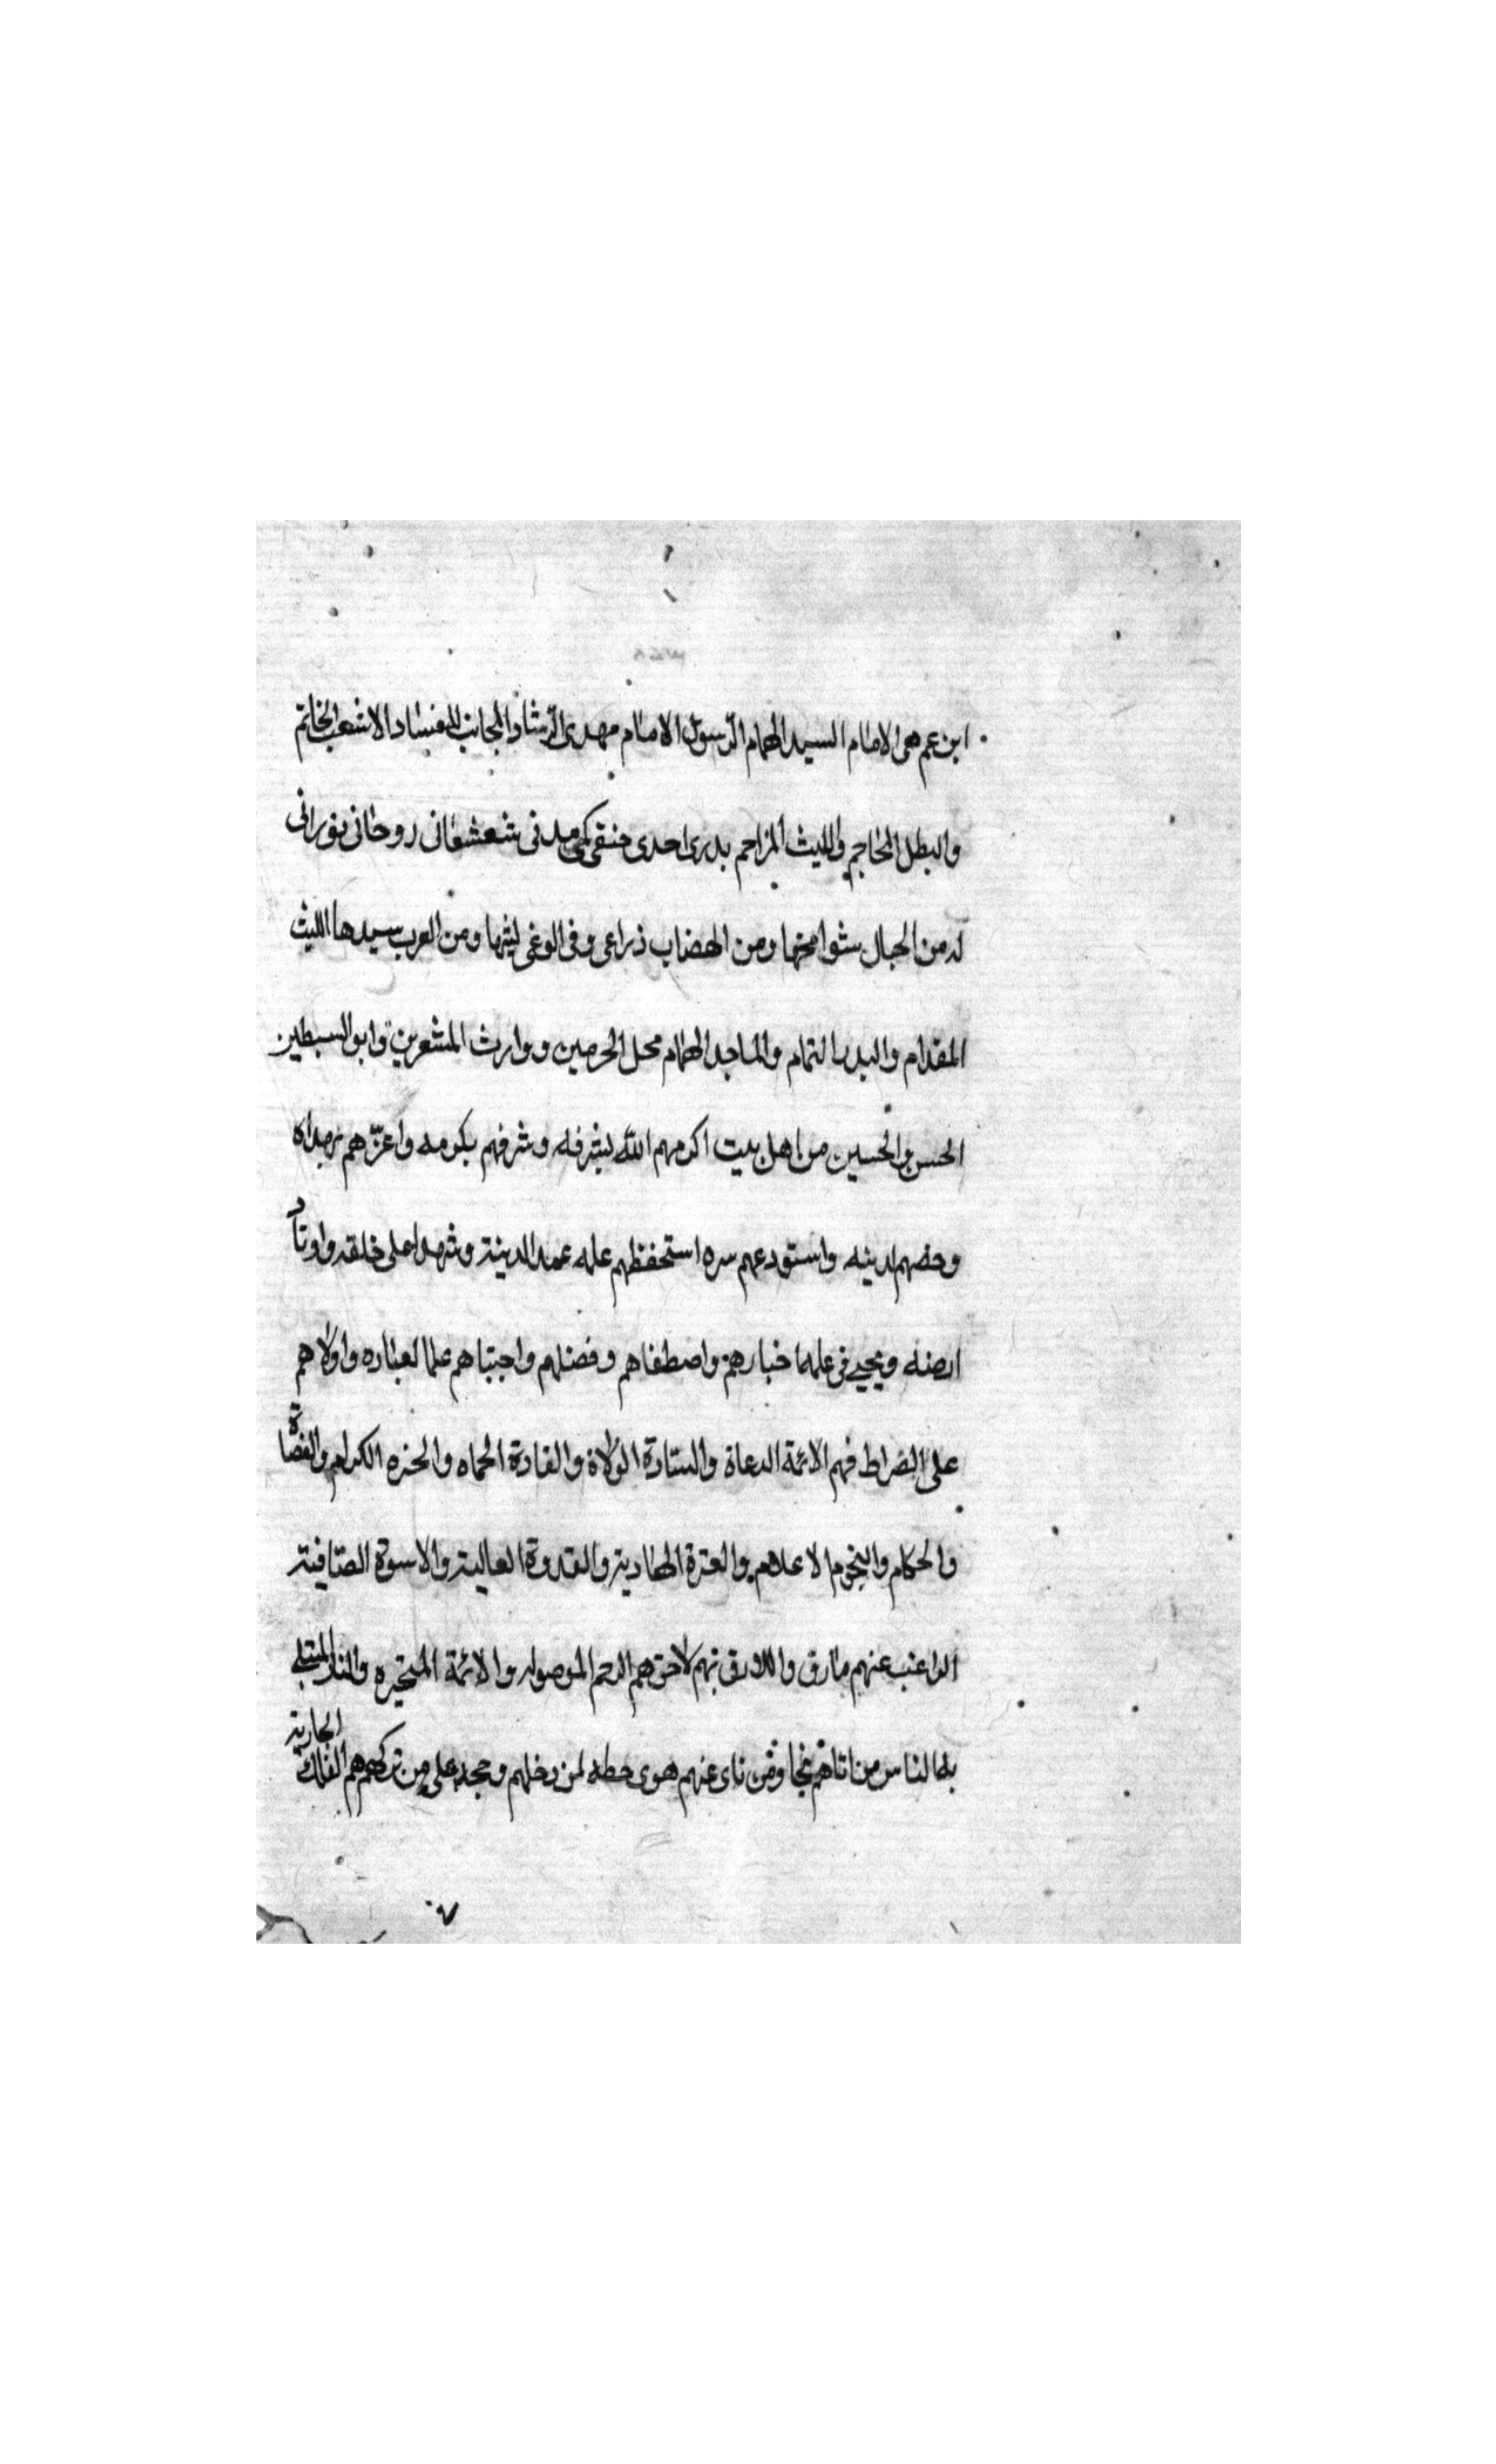 ابن عم هى الامام السيد الهمام الرسول الامام مهدى الرشاد المجانب للفساد الاشعب الخاتم
والبطل الخاجم والليث المزاحم بدرى احدى حنقى مكى مدنى شعشعانى روحانى نورانى
له من الجبال شوامخها ومن الهضاب ذراعى وفى الوغى ليثها ومن العرب سيدها الليث
المقدام والبدر التمام والماجد الهمام محل الحرمين ووارث المشعرين وابو السبطين
الحسن والحسين من اهل بيت اكرمهم الله بشرفه وشرفهم بكرمه واعزهم
وخصهم لدينه واستودعهم سره استحفظهم علمه عمد الدينه وشهدا على خلقه واوتاد
ارضه ويحيى فى علمها خبارهم واصطفاهم وفضلهم واجتباهم علما لعباده واولاهم
على الصراط فهم الائمة الدعاة والسادة الولاة والقادة الحماه والخيره الكرام والقضاة
والحكام والنجوم الاعلام والعترة الهادية والقدوة العالية والاسوة الصافية
الراغب عنهم مارق واللازق بهم لاحق هم الرحم الموصوله والائمة المتحيره والباب المبتلى
به الناس من اتاهم نجا ومن ناى عنهم هوى حطه لمن دخلهم وحجة على من تركهم هم الفلك
الجارية